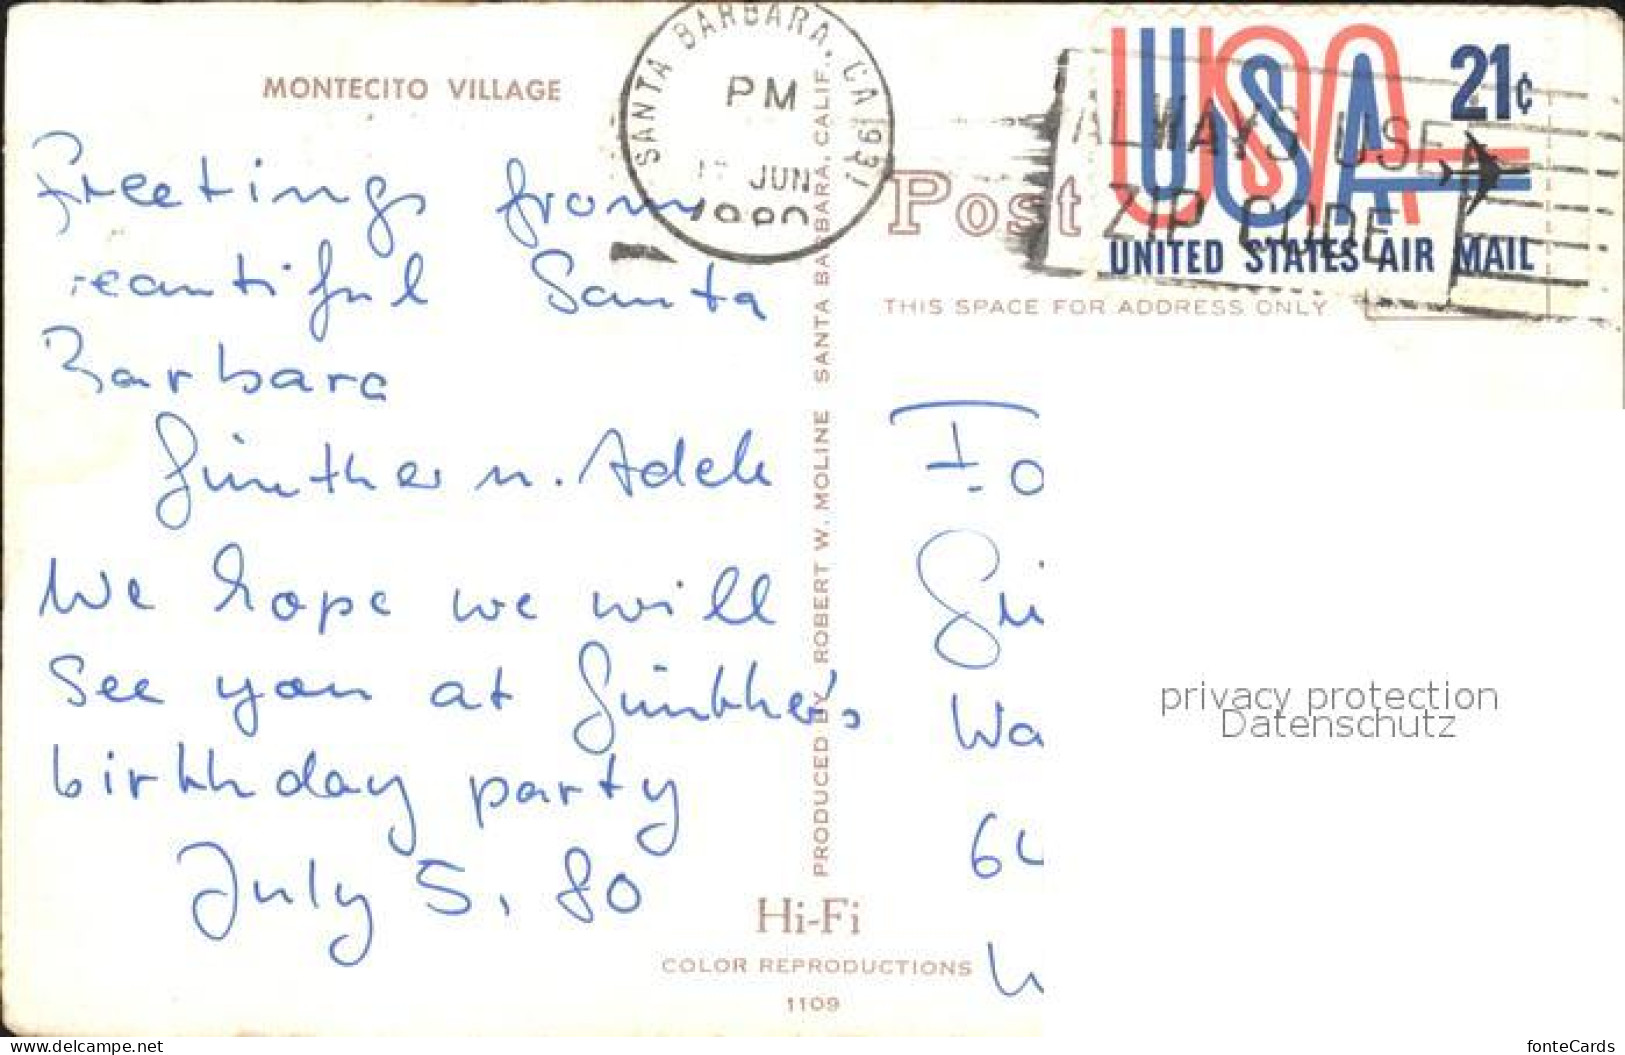 MONTECITO VILLAGE
Greetings from
beautiful Santa
Barbara
Günther u. Adele
We hope we will
see you at Günther's
birthday party
July 5, 80
SANTA BARBARA, CA 931
PM
JUN
1980
ALWAYS USE
ZIP CODE
USA 21¢
UNITED STATES AIR MAIL
Post
THIS SPACE FOR ADDRESS ONLY
PRODUCED BY ROBERT W. MOLINE SANTA BARBARA, CALIF.
Wa
privacy protection
Datenschutz
Hi-Fi
COLOR REPRODUCTIONS
1109
www.delcampe.net
fonteCards